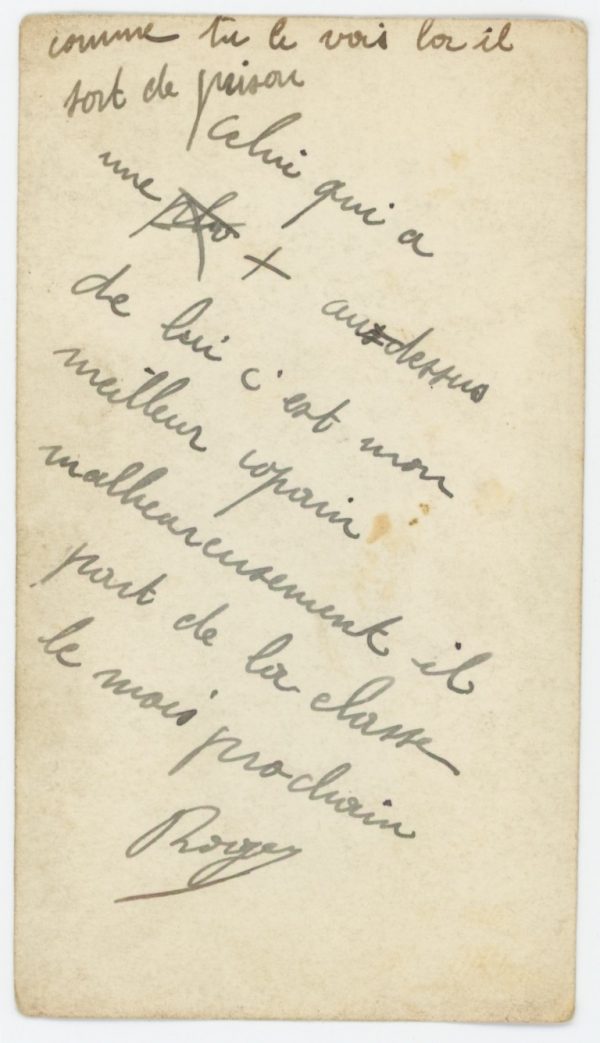 comme tu le vois la il
sort de prison
celui qui a
une + au dessus
de lui c'est mon
meilleur copain
malheureusement il
part de la classe
le mois prochain
Roger